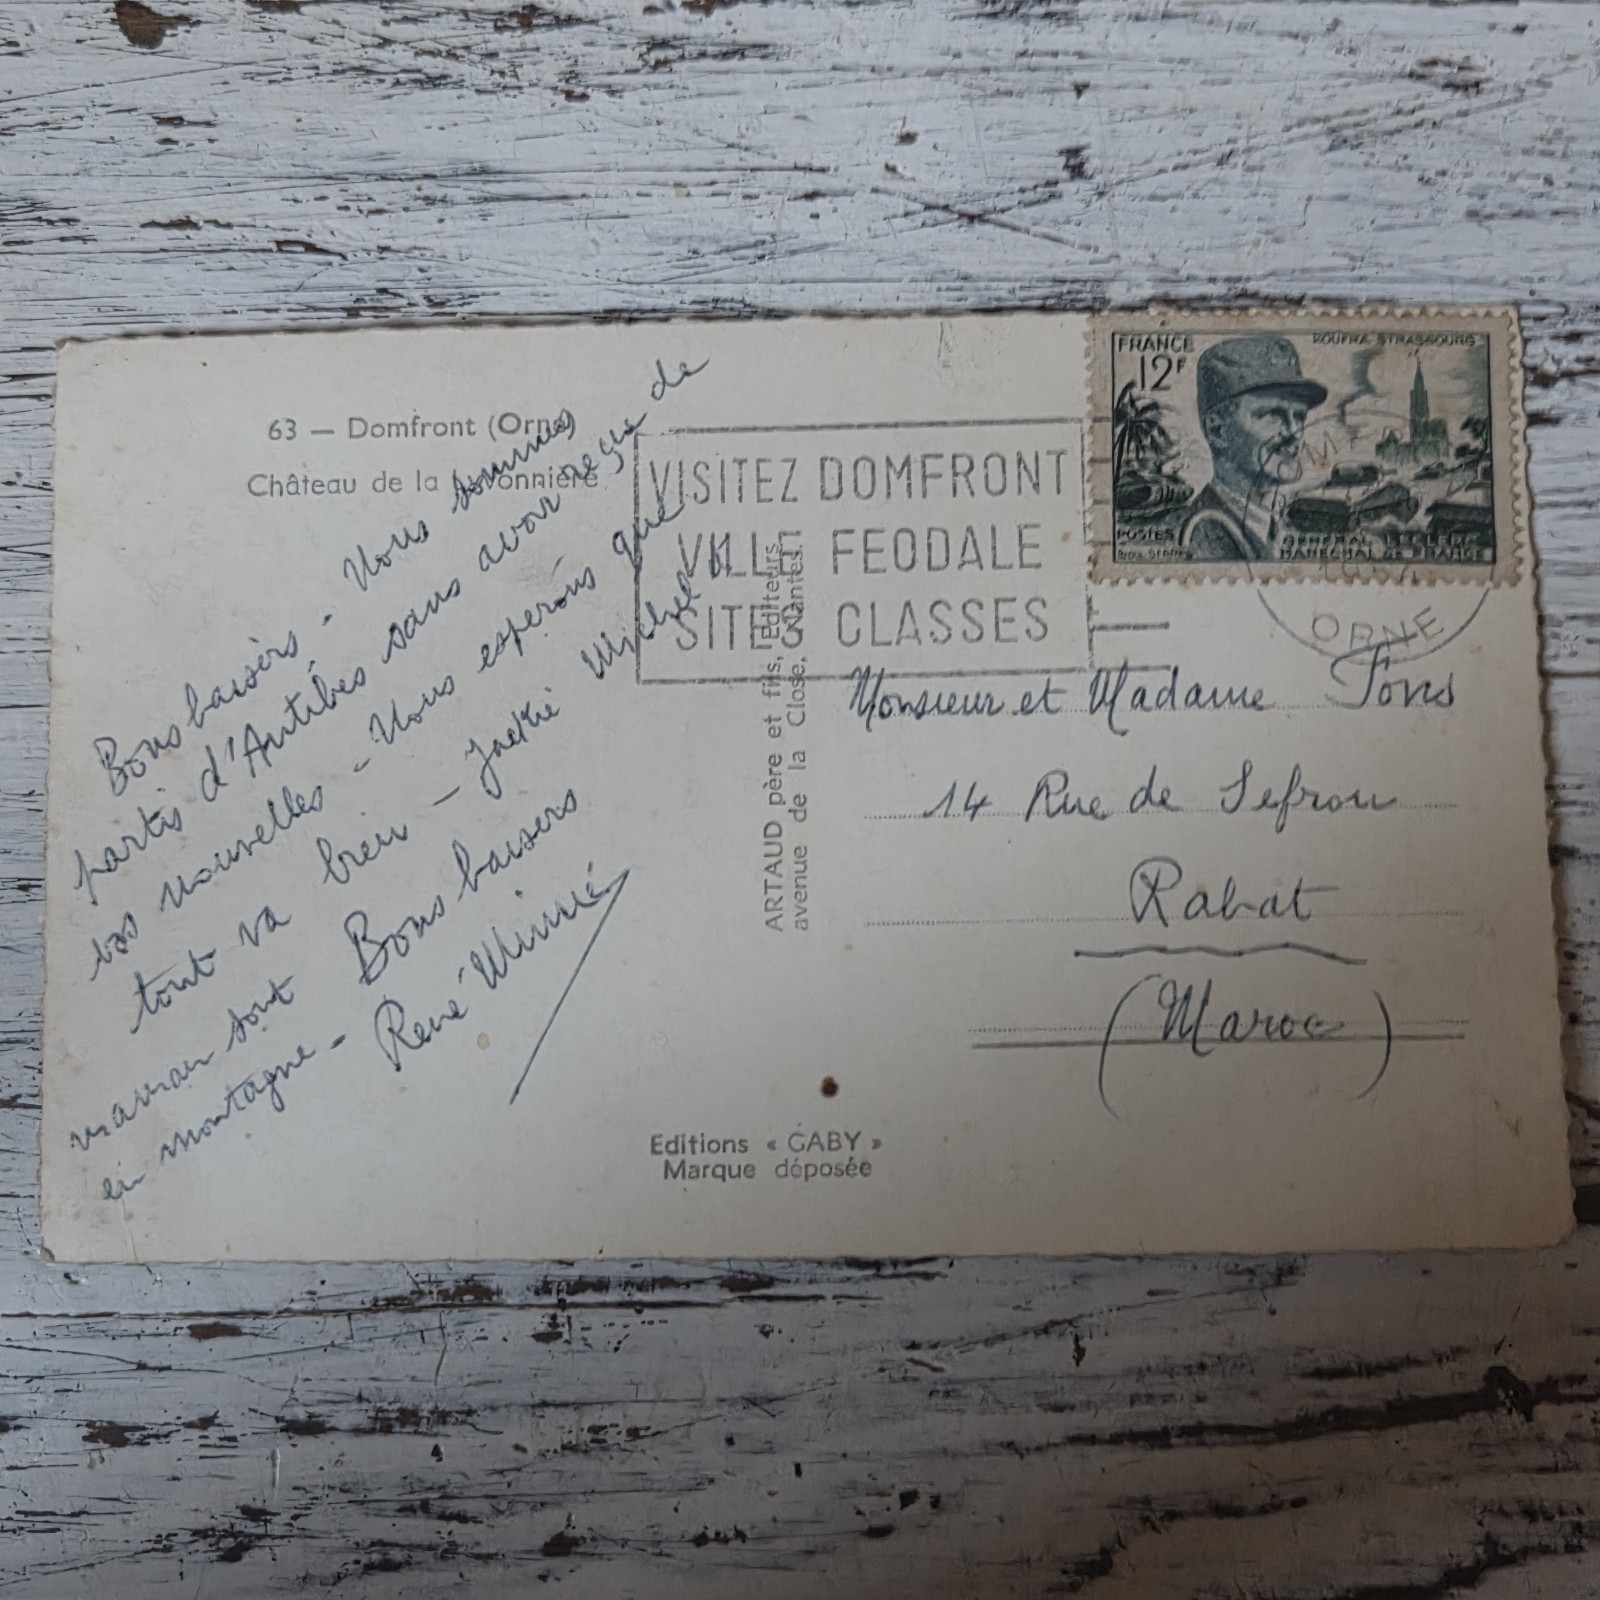 63 — Domfront (Orne)
Château de la
Bons baisers - Nous sommes
partis d'Antibes sans avoir reçu de
vos nouvelles - Nous esperons que
tout va bien - Jackie Michel et
maman sont
en montagne -
Bons baisers
René Mimi
VISITEZ DOMFRONT
VILLE FEODALE
SITES CLASSES
ARTAUD père et fils, Editeurs
avenue de la Close, Nantes.
FRANCE
12F
KOUFRA STRASBOURG
POSTES
GENERAL LECLERC
MARECHAL DE FRANCE
ORNE
Monsieur et Madame Pons
14 Rue de Sefrou
Rabat
(Maroc)
Editions « GABY »
Marque déposée